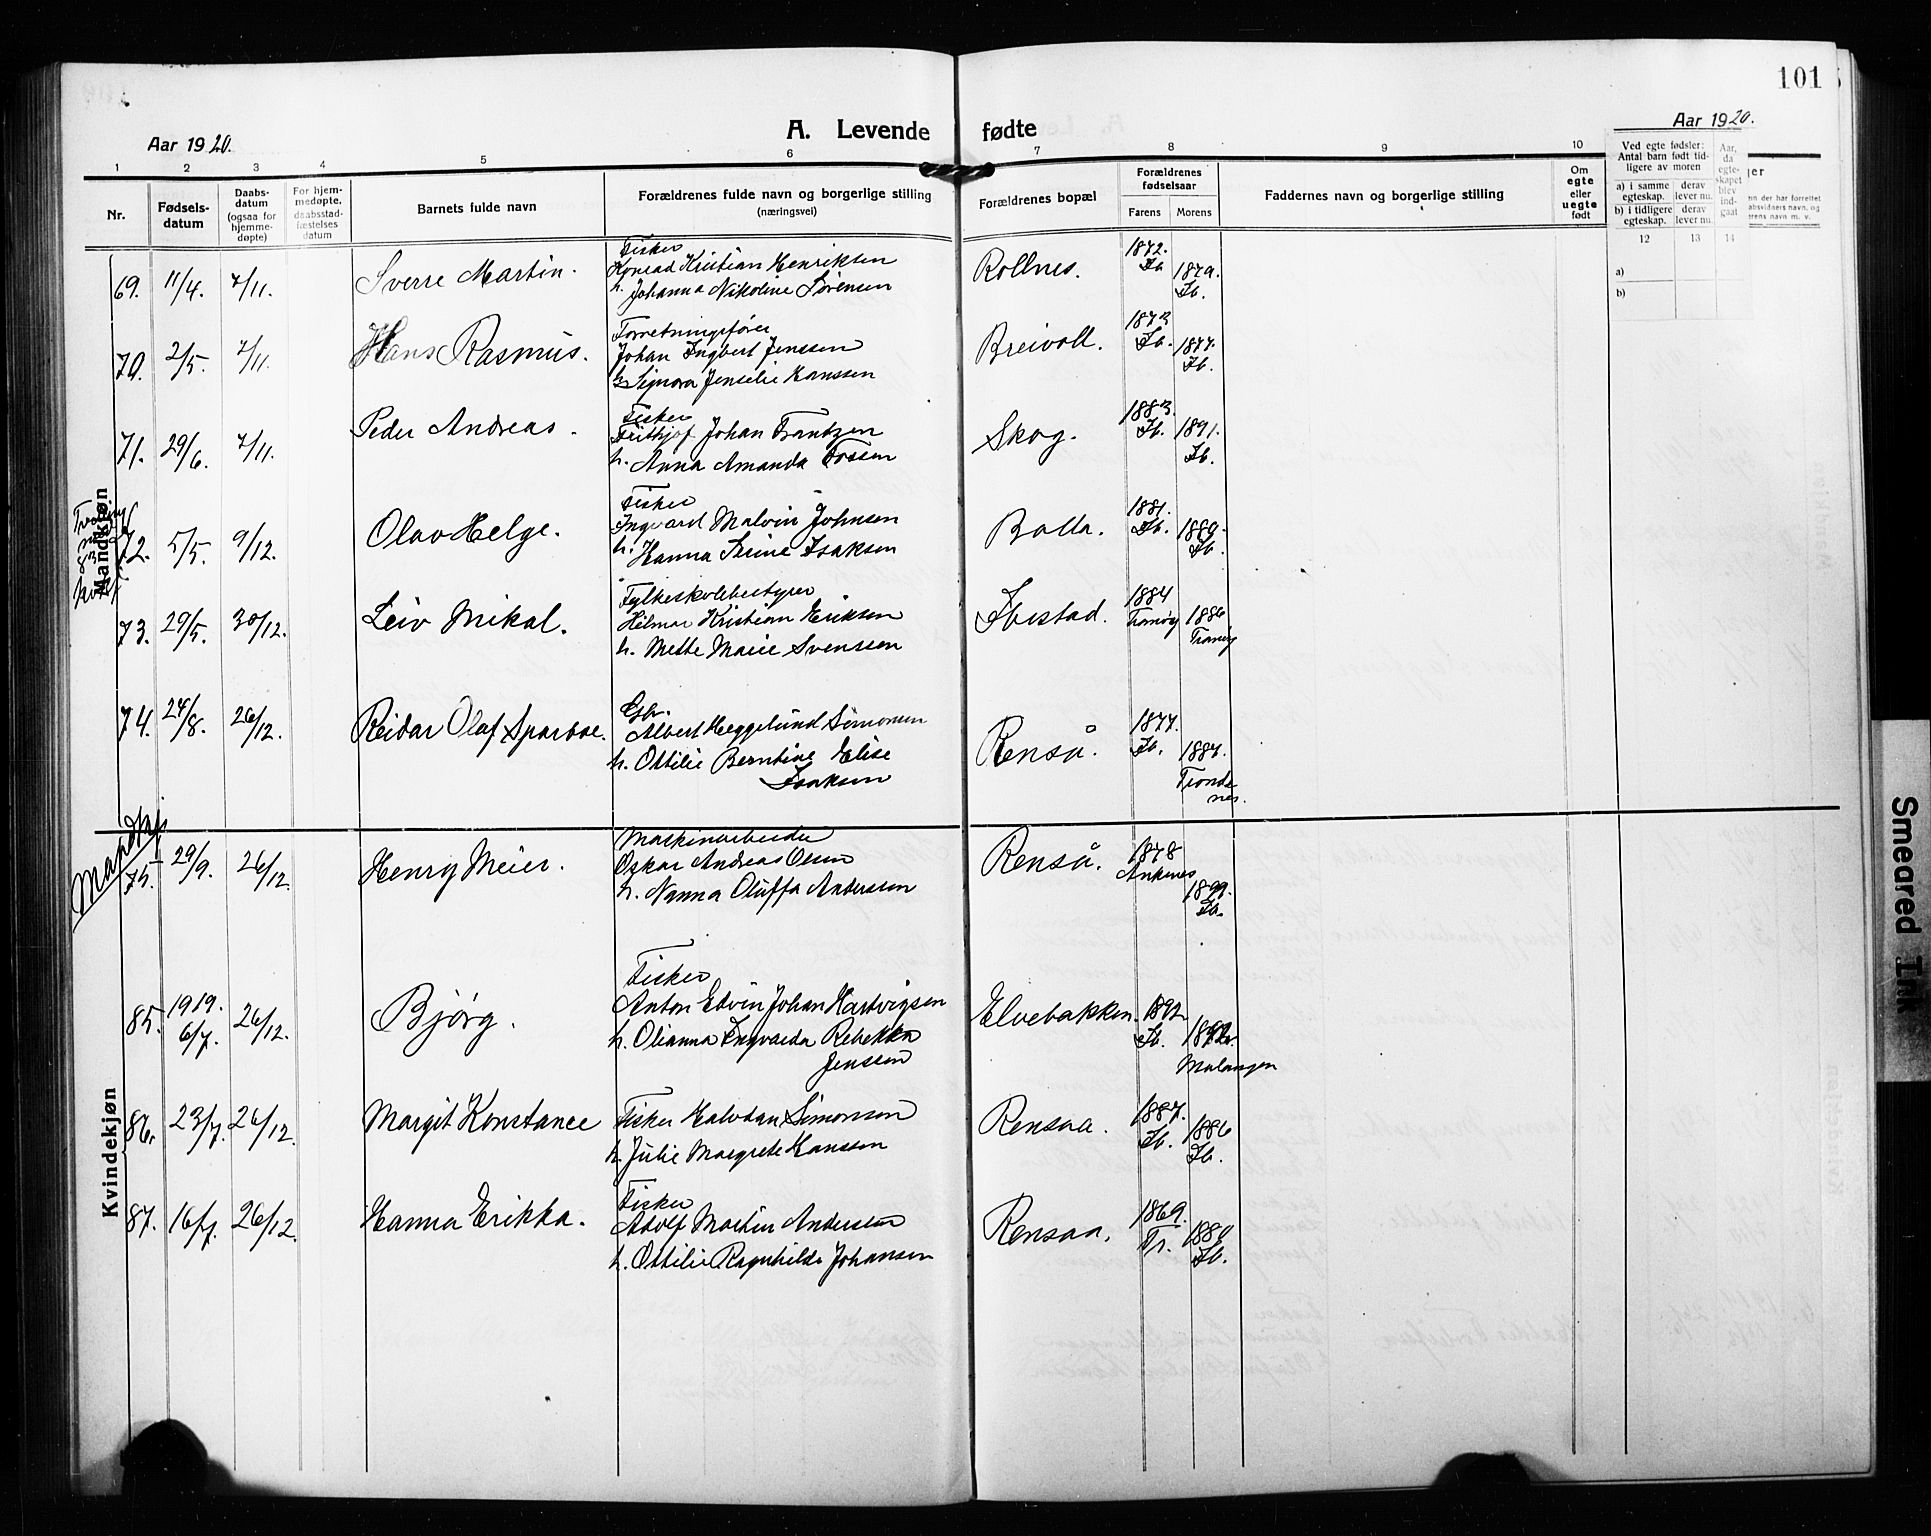 101
Aar 1920.
A. Levende fødte
Aar 1920.
1 2 3 4 5 6 7 8 9 10
Nr.
Fødsels-
datum
Daabs-
datum
(ogsaa for
hjemme-
døpte)
For hjem-
medøpte,
daabsstad-
fæstelses
datum
Barnets fulde navn
Forældrenes fulde navn og borgerlige stilling
(næringsvei)
Forældrenes bopæl
Forældrenes
fødselsaar
Farens Morens
Faddernes navn og borgerlige stilling
Om
egte
eller
uegte
født
Ved egte fødsler:
Antal barn født tid-
ligere av moren
a) i samme
egteskap.
derav
lever nu.
b) i tidligere
egteskap.
derav
lever nu.
Aar,
da
egte-
skapet
blev
ind-
gaat
12 13 14
a)
b)
Mandkjøn
69. 11/4. 7/11. Sverre Martin.
Fisker
Konrad Kristian Henriksen
h. Johanna Nikoline Sørensen
Rollnes. 1872. Ib. 1879. Ib.
70. 2/5. 7/11. Hans Rasmus.
Forretningsfører
Johan Ingbert Jenssen
h. Signora Jenselie Hanssen
Breivoll. 1873. Ib. 1877. Ib.
71. 29/6. 7/11. Peder Andreas.
Fisker
Frithjof Johan Frantzen
h. Anna Amanda Fossen
Skog. 1883. Ib. 1891. Ib.
72. 5/5. 9/12. Olav Helge.
Fisker
Ingvard Malvin Johnsen
h. Hanna Serine Isaksen
Bolla. 1881. Ib. 1889. Ib.
73. 29/5. 30/12. Leiv Mikal.
Fylkeskolebestyrer
Hilmar Kristian Eriksen
h. Mette Marie Svenssen
Ibestad. 1884 Tranøy 1886 Tranøy
74. 24/8. 26/12. Reidar Olaf Sparboe.
Gbr.
Albert Heggelund Simonsen
h. Ottilie Berntine Elise
Isaksen
Renså. 1877. Ib. 1887. Trondenes.
Mandkj
75. 29/9. 26/12. Henry Meier.
Maskinarbeider
Oskar Andreas Olsen
h. Nanna Oluffa Anderssen
Renså. 1878 Ankenes 1899. Ib.
Kvindekjøn
85. 1919. 6/7. 26/12. Bjørg.
Fisker
Anton Edvin Johan Hartvigsen
h. Olianna Ingvarda Rebekka
Jenssen
Elvebakken. 1892 Ib. Malangen
86. 23/7. 26/12. Margit Konstance
Fisker Halvdan Simonsen
h. Julie Margrete Hanssen
Rensaa. 1887. Ib. 1886 Ib.
87. 16/7. 26/12. Hanna Erikka.
Fisker
Adolf Martin Anderssen
h. Ottilie Ragnhilde Johansen
Rensaa. 1869. Tr. 1880 Ib.
Smeared Ink